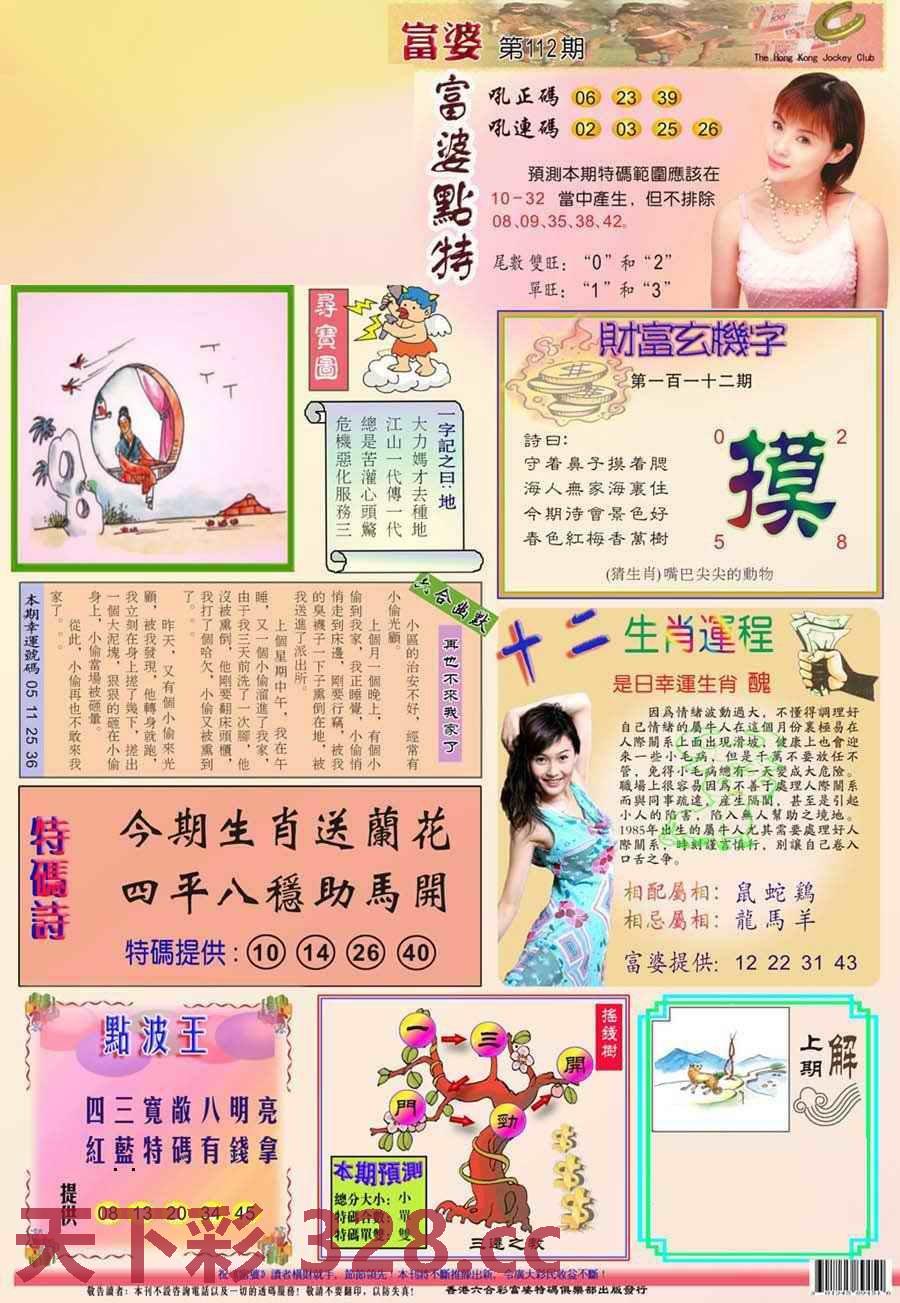 富婆 第112期
The Hong Kong Jockey Club
富婆點特
吼正碼 06 23 39
吼連碼 02 03 25 26
預測本期特碼範圍應該在
10-32 當中產生，但不排除
08、09、35、38、42。
尾數雙旺：“0”和“2”
單旺：“1”和“3”
尋寶圖
一字記之曰：地
大力媽才去種地
江山一代傳一代
總是苦灌心頭驚
危機惡化服務三
財富玄機字
第一百一十二期
詩曰：
守着鼻子摸着腮
海人無家海裏住
今期待會景色好
春色紅梅香萬樹
0 2
摸
5 8
(猜生肖)嘴巴尖尖的動物
六合幽默
再也不來我家了
小區的治安不好，經常有
小偷光顧。
上個月一個晚上，有個小
偷到我家，我正睡覺，小偷悄
悄走到床邊，剛要行竊，被我
的臭襪子一下子熏倒在地，被
我送進了派出所。
上個星期中午，我在午
睡，又一個小偷溜進了我家，
由于我三天前洗了一次腳，他
沒被熏倒，他剛要翻床頭櫃，
我打了個哈欠，小偷又被熏到
了。。
昨天，又有個小偷來光
顧，被我發現，他轉身就跑，
我立刻在身上搓了幾下，搓出
一個大泥塊，狠狠的砸在小偷
身上，小偷當場被砸暈。
從此，小偷再也不敢來我
家了。。。
本期幸運號碼 05 11 25 36
十二生肖運程
是日幸運生肖 醜
因爲情緒波動過大，不懂得調理好
自己情緒的屬牛人在這個月份裏極易在
人際關系上面出現滑坡，健康上也會迎
來一些小毛病，但是千萬不要放任不
管，免得小毛病總有一天變成大危險。
職場上很容易因爲不善于處理人際關系
而與同事疏遠，産生隔閡，甚至是引起
小人的陷害，陷入無人幫助之境地。
1985年出生的屬牛人尤其需要處理好人
際關系，時刻謹言慎行，別讓自己卷入
口舌之爭。
相配屬相：鼠蛇鷄
相忌屬相：龍馬羊
富婆提供：12 22 31 43
特碼詩
今期生肖送蘭花
四平八穩助馬開
特碼提供：10 14 26 40
點波王
四三寬敞八明亮
紅藍特碼有錢拿
提供 08 13 20 34 45
搖錢樹
一 三 開
門 勁
本期預測
總分大小：小
特碼合數：單
特碼單雙：雙
三選之數
上期解
天下彩 328.cc
祝《富婆》讀者橫財就手，節節領先！本刊將不斷推陳出新，令廣大彩民收益不斷！
敬告讀者：本刊不設咨詢電話以及一切的透碼服務！敬請不要翻印，以防失真！
香港六合彩富婆特碼俱樂部出版發行